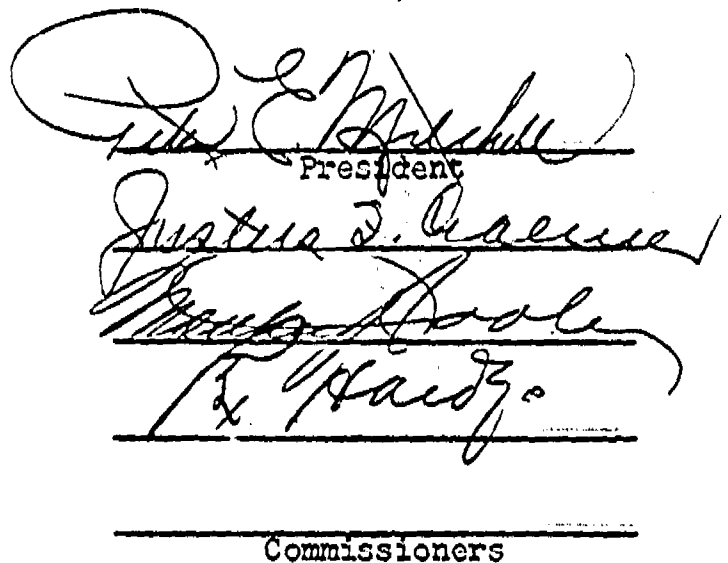 Peter E. Mitchell
President
Justus F. Craemer
Rex Hardy
Commissioners